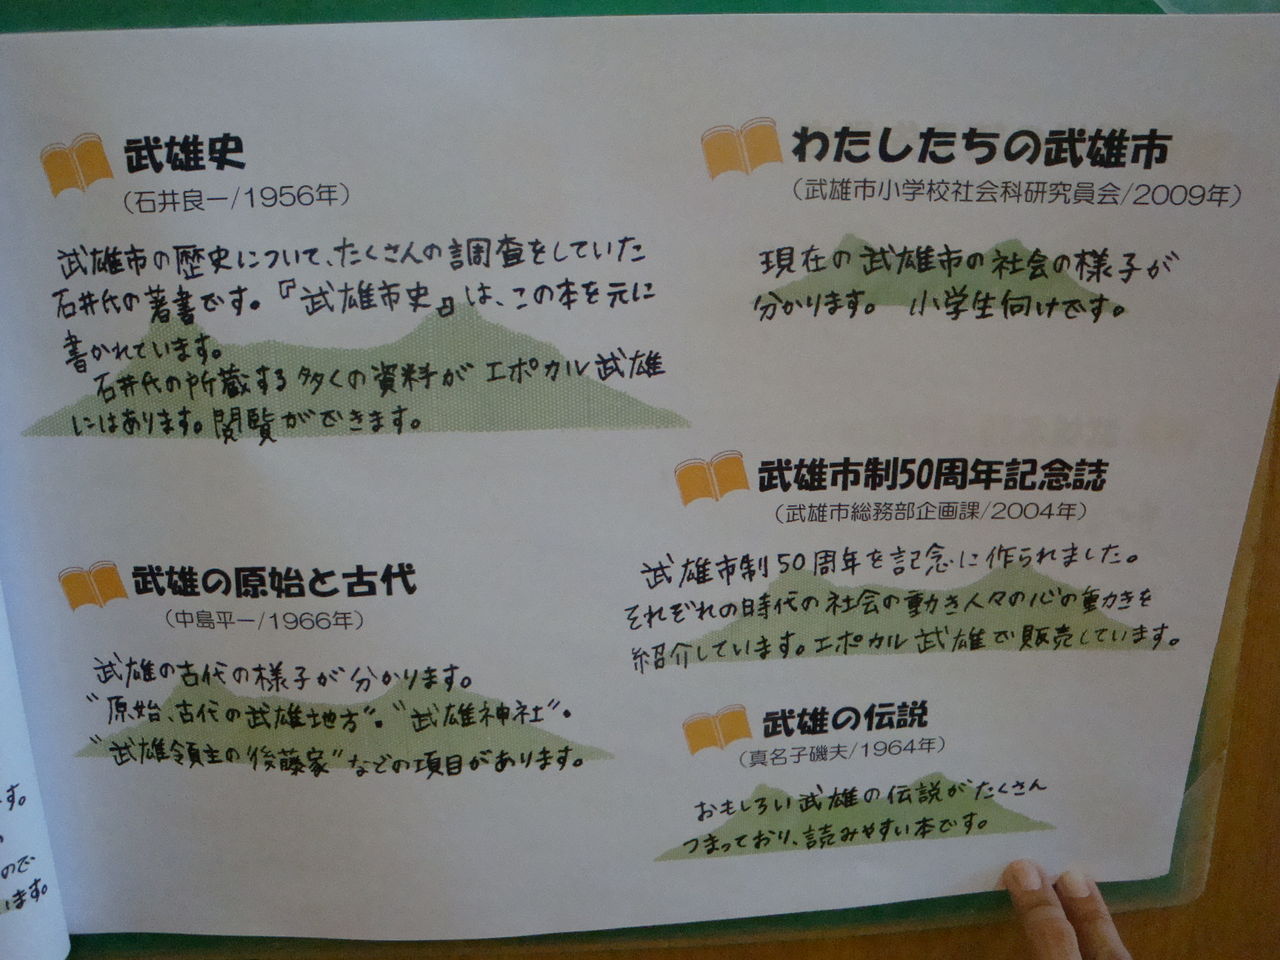 武雄史
（石井良一/1956年）
武雄市の歴史について、たくさんの調査をしていた
石井氏の著書です。『武雄市史』は、この本を元に
書かれています。
石井氏の所蔵する多くの資料が エポカル武雄
にはあります。閲覧ができます。
武雄の原始と古代
（中島平一/1966年）
武雄の古代の様子が分かります。
“原始、古代の武雄地方”。“武雄神社”。
“武雄領主の後藤家”などの項目があります。
わたしたちの武雄市
（武雄市小学校社会科研究員会/2009年）
現在の武雄市の社会の様子が
分かります。 小学生向けです。
武雄市制50周年記念誌
（武雄市総務部企画課/2004年）
武雄市制50周年を記念に作られました。
それぞれの時代の社会の動き人々の心の動きを
紹介しています。エポカル武雄で販売しています。
武雄の伝説
（真名子磯夫/1964年）
おもしろい武雄の伝説がたくさん
つまっており、読みやすい本です。
す。
ので
います。